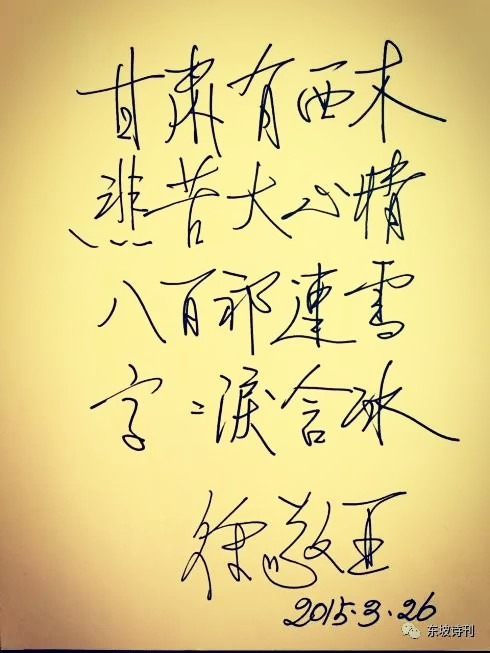 甘肃有西木
悲苦大心情
八百祁連雪
字〻淚含冰
徐敬亚
2015.3.26
东坡诗刊